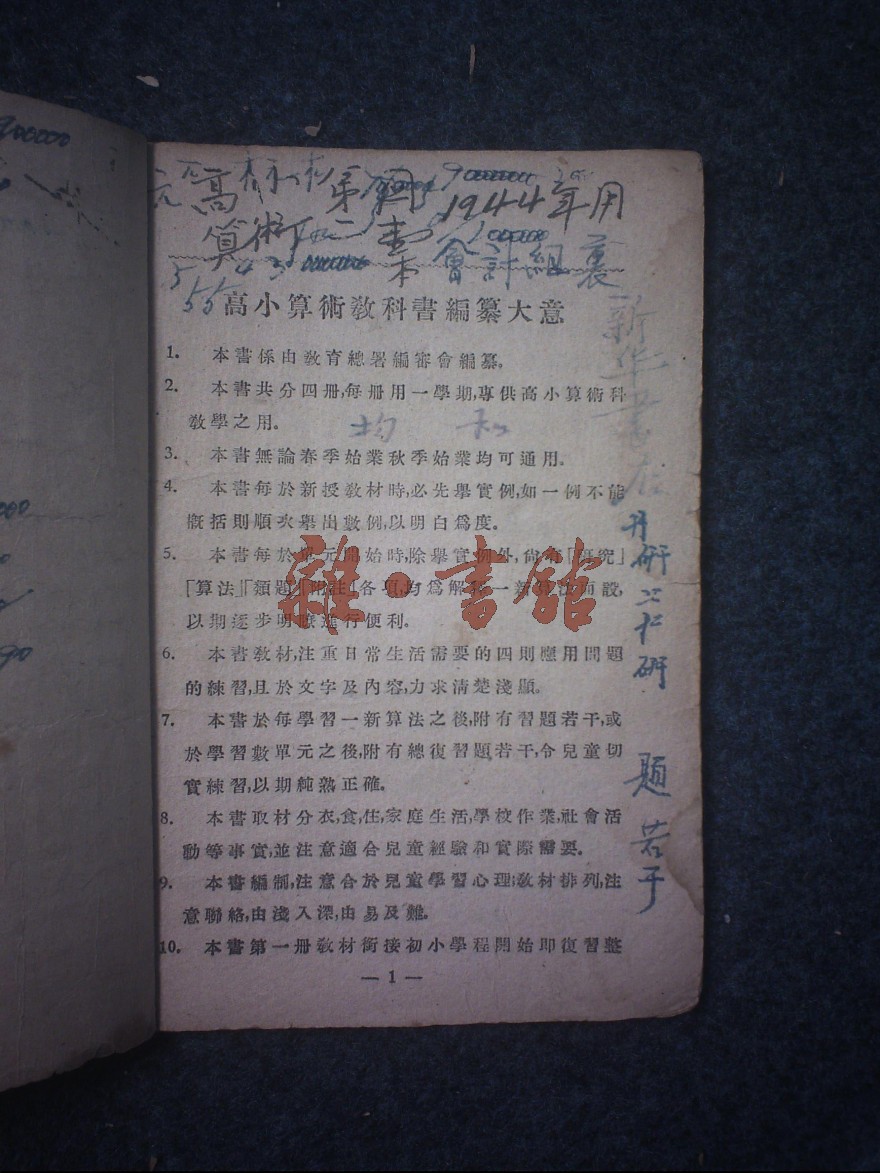 高 第 1944年用
算術 會計組裏
高小算術教科書編纂大意
1. 本書係由教育總署編審會編纂。
2. 本書共分四冊,每冊用一學期,專供高小算術科
教學之用。
均 和
3. 本書無論春季始業秋季始業均可通用。
4. 本書每於新授教材時,必先舉實例,如一例不能
概括則順次舉出數例,以明白爲度。
5. 本書每於單元開始時,除舉實例外,尚有「研究」
「算法」「類題」「附註」各項,均爲解釋一新算法而設,
以期逐步明瞭進行便利。
6. 本書教材,注重日常生活需要的四則應用問題
的練習,且於文字及內容,力求清楚淺顯。
7. 本書於每學習一新算法之後,附有習題若干,或
於學習數單元之後,附有總復習題若干,令兒童切
實練習,以期純熟正確。
8. 本書取材分衣,食,住,家庭生活,學校作業,社會活
動等事實,並注意適合兒童經驗和實際需要。
9. 本書編制,注意合於兒童學習心理;教材排列,注
意聯絡,由淺入深,由易及難。
10. 本書第一冊教材銜接初小學程開始即復習整
— 1 —
新华書店
題若干
雜·書館